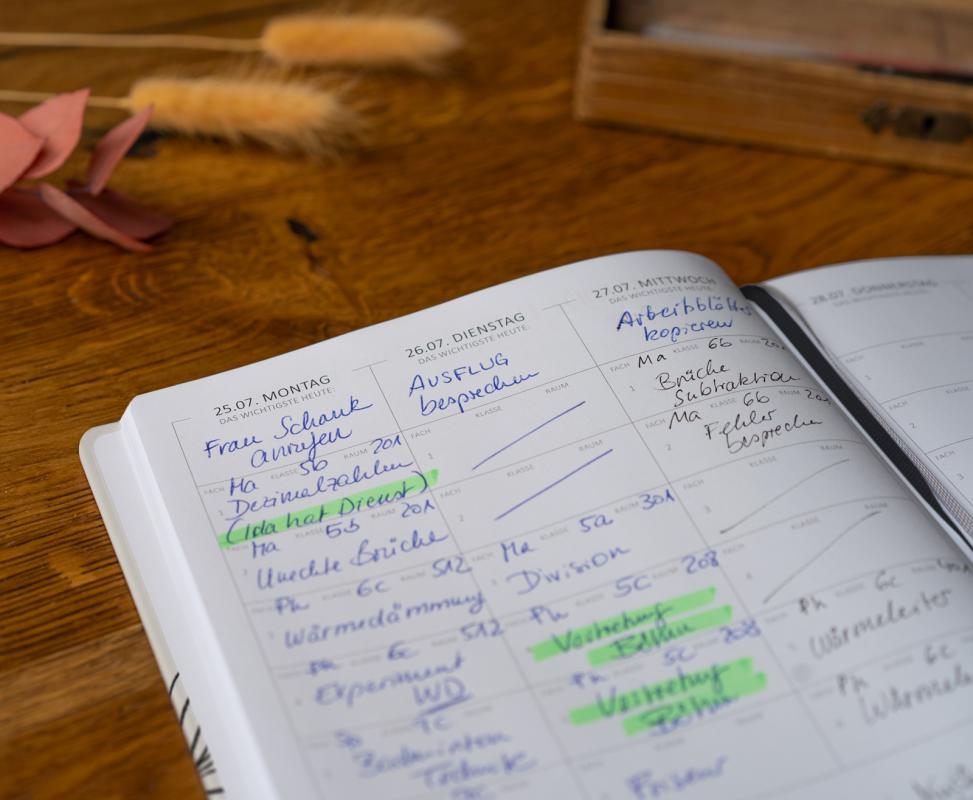 25.07. MONTAG
DAS WICHTIGSTE HEUTE:
Frau Schank
anrufen
FACH Ma KLASSE 5b RAUM 201
1 Dezimalzahlen
(Ida hat Dienst)
FACH Ma 5b RAUM 201
2 Unechte Brüche
Ph 6c 512
Wärmedämmung
Ph 6c 512
Experiment
WD
Badminton
Technik
26.07. DIENSTAG
DAS WICHTIGSTE HEUTE:
AUSFLUG
besprechen
FACH KLASSE RAUM
1
FACH KLASSE RAUM
2
Ma 5a 301
Division
Ph 5c 208
Vertretung
Ph 5c 208
Vertretung
Friseur
27.07. MITTWOCH
DAS WICHTIGSTE HEUTE:
Arbeitsblätter
kopieren
Ma KLASSE 6b RAUM
1 Brüche
Subtraktion
Ma 6b
2 Fehler
besprechen
3 KLASSE
4 KLASSE
Ph 6c
Wärmeleiter
Ph 6c
28.07. DONNERSTAG
DAS WICHTIGSTE HEUTE:
1
2
3